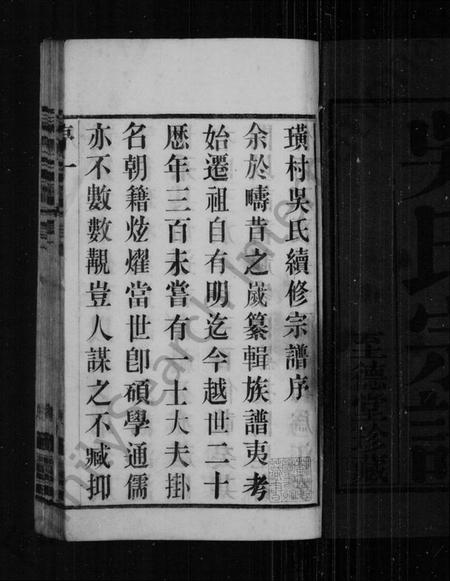 璜村吳氏續修宗譜序
余於疇昔之歲纂輯族譜夷考
始遷祖自有明迄今越世二十
歷年三百未嘗有一士大夫掛
名朝籍炫燿當世卽碩學通儒
亦不數數覯豈人謀之不臧抑
序一
吳氏宗譜
至德堂珍藏
FamilySearch